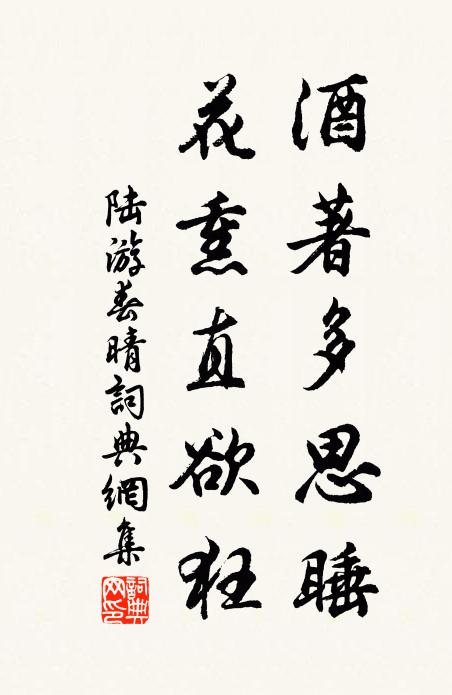 酒著多思睡
花熏直欲狂
陆游春晴詞典網集
詞典网印